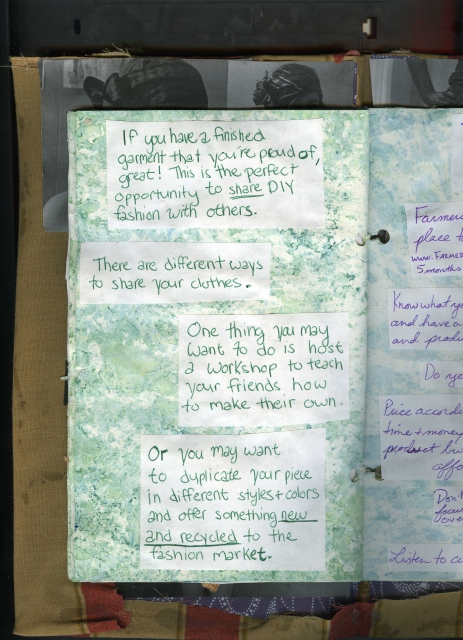 If you have a finished
garment that you're proud of,
great! This is the perfect
opportunity to share DIY
fashion with others.
There are different ways
to share your clothes.
One thing you may
want to do is host
a workshop to teach
your friends how
to make their own.
Or you may want
to duplicate your piece
in different styles + colors
and offer something new
and recycled to the
fashion market.
Farmers
place t
www.Farme
5 months
Know what y
and have a
and produ
Do
Price accord
time + money
product bu
affo
Don't
focus
Listen to c